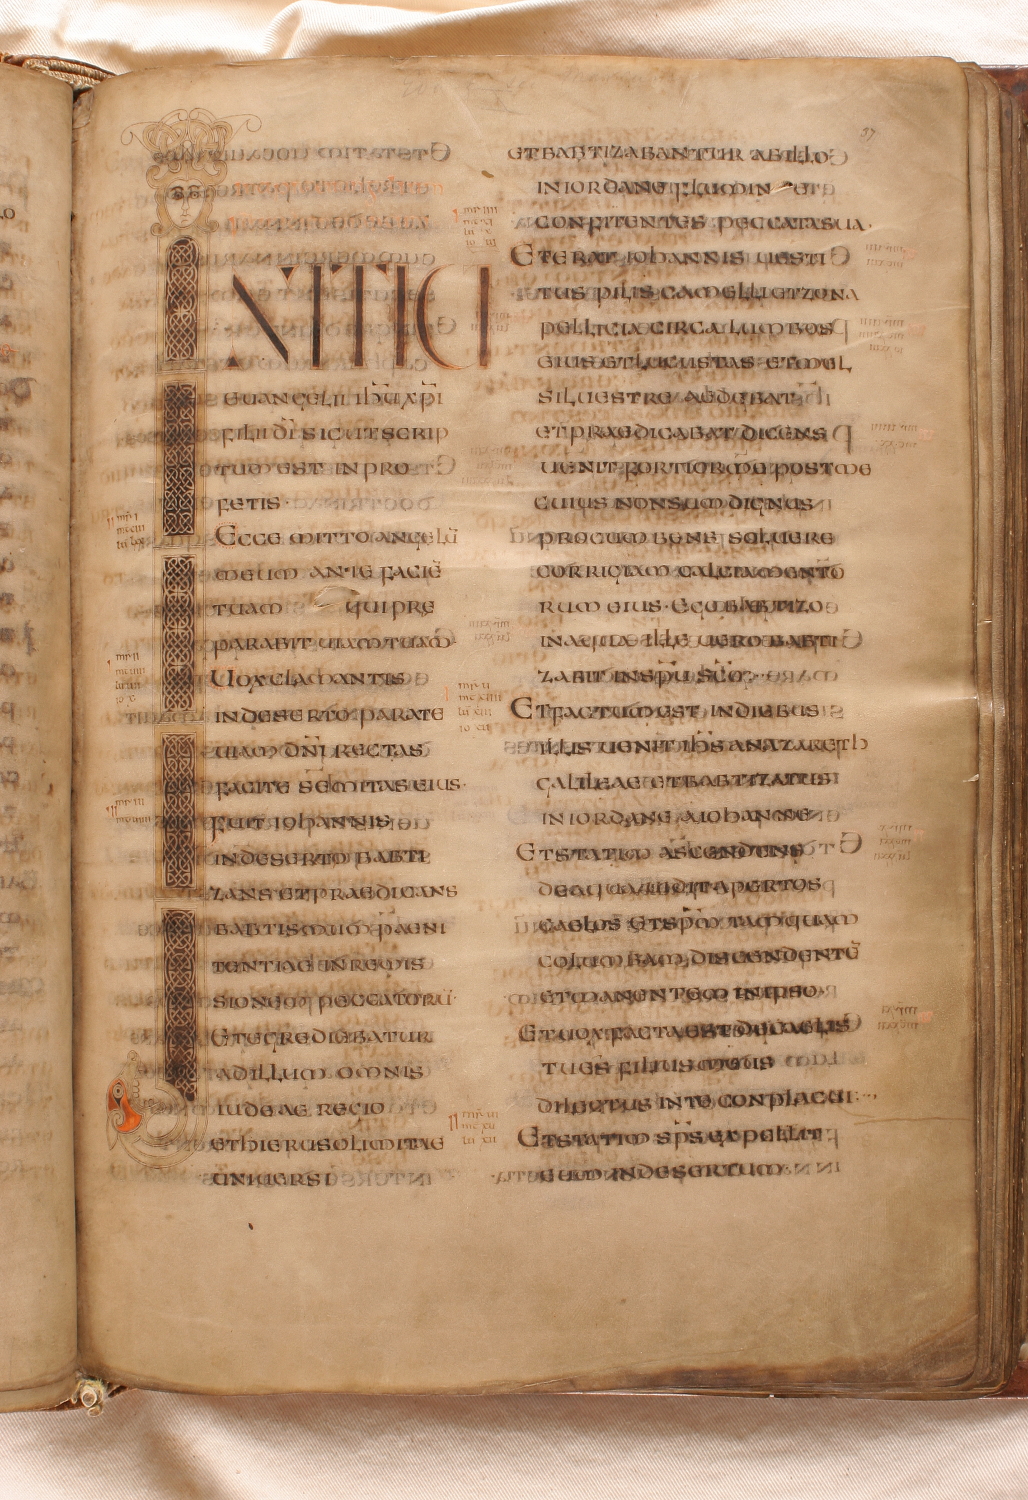 INITIU
euangelii ihu xpi
filii di sicut scrip
tum est in pro
fetis·
Ecce mitto angelū
meum ante faciē
tuam qui pre
parabit uiam tuam
Uox clamantis
in deserto parate
uiam dni rectas
facite semitas eius·
Fuit iohannis
in deserto babti
zans et praedicans
babtismum paeni
tentiae in remis
sionem peccatorū·
Et egrediebatur
ad illum omnis
iudeae regio
et hierusolimitae
uniuersi
37
et babtizabantur ab illo
in iordane flumine
confitentes peccata sua·
Et erat iohannis uesti
tus pilis camelli et zona
pellicia circa lumbos
eius et lucustas et mel
siluestre aedebat
et praedicabat dicens
uenit fortior me post me
cuius non sum dignus
procumbens soluere
corrigiam calciamento
rum eius· Ego babtizo
in aqua ille uero babti
zabit in spu sco·
Et factum est in diebus
illis uenit ihs a nazareth
galileae et babtizatus
in iordane a iohanne
Et statim ascendens
de aqua uidit apertos
caelos et spm tamquam
columbam discendentē
et manentem in ipso
Et uox facta est de caelis
tu es filius meus
dilectus in te conplacui
Et statim sps expellit
eum in desertum